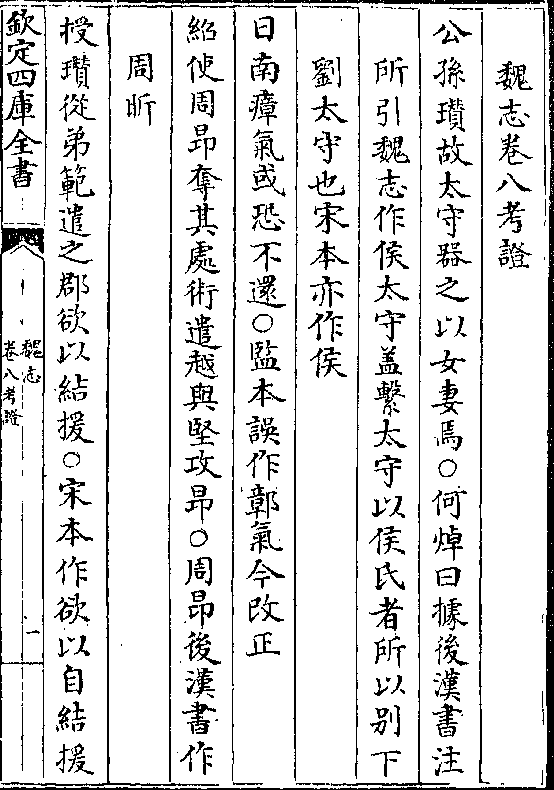 魏志卷八考證
公孫瓚故太守器之以女妻焉○何焯曰據後漢書注
所引魏志作侯太守盖繫太守以侯氏者所以别下
劉太守也宋本亦作侯
日南瘴氣或恐不還○監本誤作鄣氣今改正
紹使周昂奪其處術遣越與堅攻昂○周昂後漢書作
周昕
授瓚從弟範遣之郡欲以結援○宋本作欲以自結援
欽定四庫全書
魏志
卷八考證
一